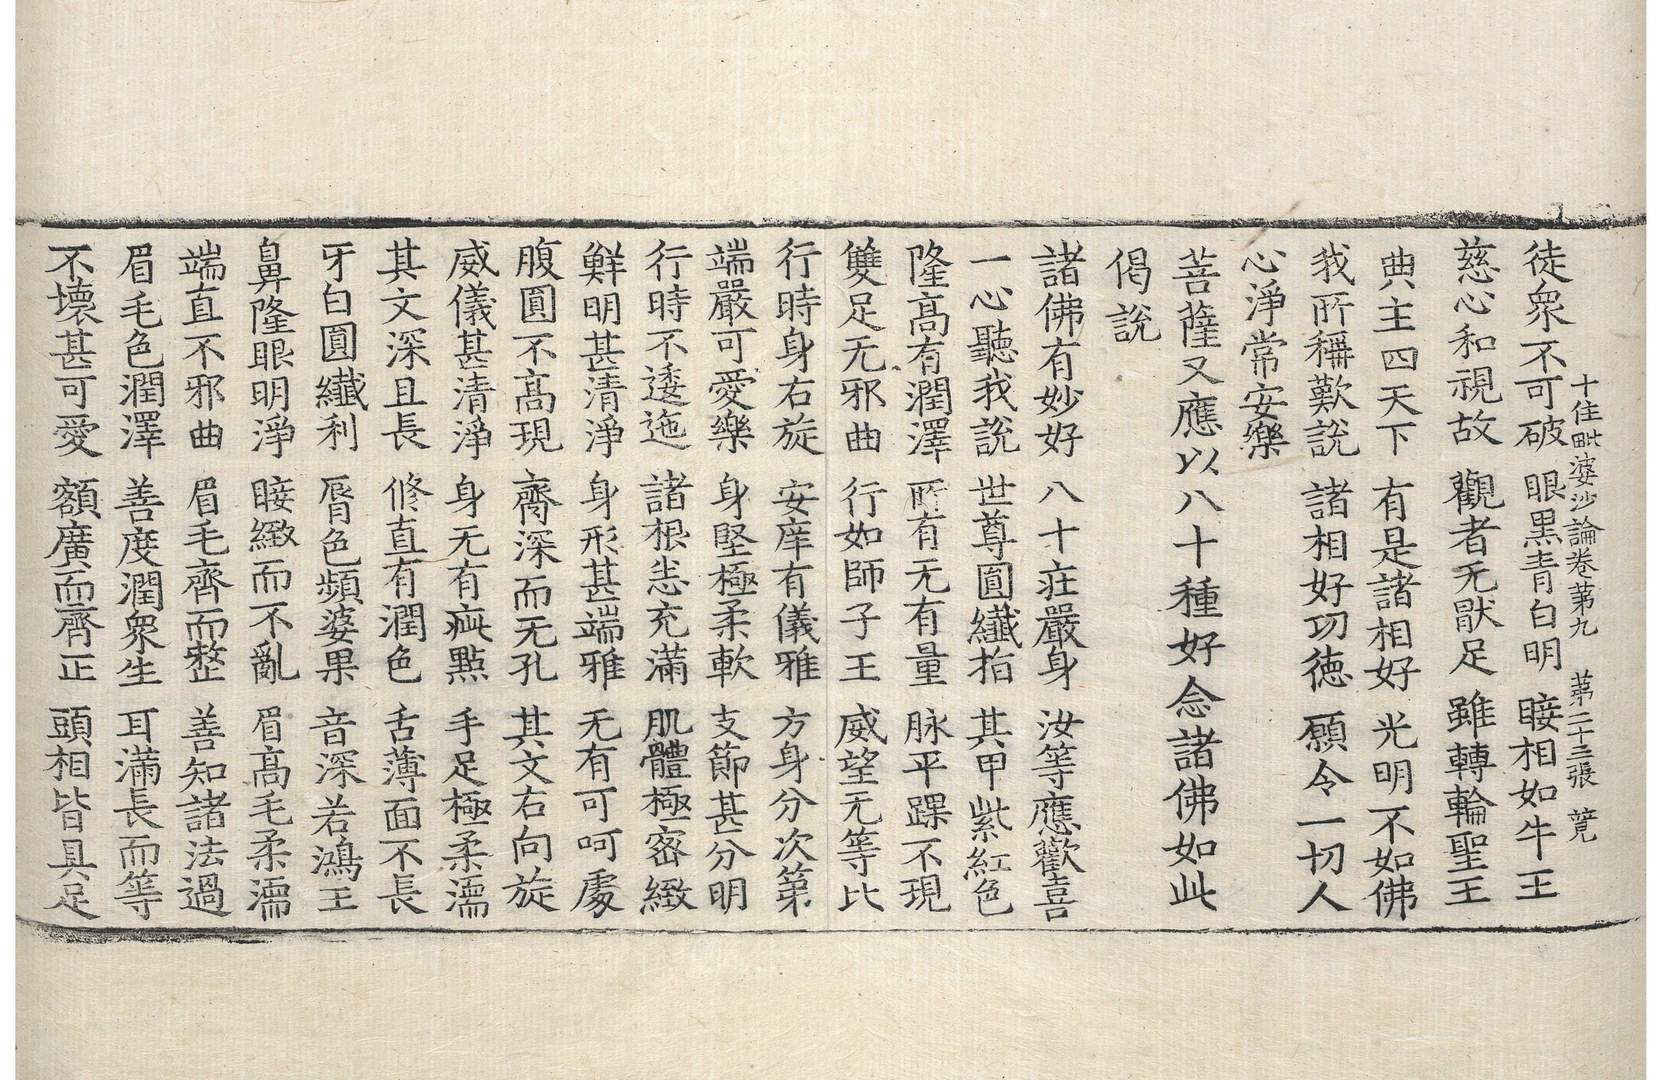 徒衆不可破　眼黑青白明　睫相如牛王
十住毗婆沙論卷苐九　苐二十三張　竟
慈心和視故　觀者无猒足　雖轉輪聖王
典主四天下　有是諸相好　光明不如佛
我所稱歎說　諸相好功德　願令一切人
心淨常安樂
菩薩又應以八十種好念諸佛如此
偈說
諸佛有妙好　八十莊嚴身　汝等應歡喜
一心聽我說　世尊圓纖指　其甲紫紅色
隆高有潤澤　所有无有量　脉平踝不現
雙足无邪曲　行如師子王　威望无等比
行時身右旋　安庠有儀雅　方身分次第
端嚴可愛樂　身堅極柔軟　支節甚分明
行時不逶迤　諸根悉充滿　肌體極密緻
鮮明甚清淨　身形甚端雅　无有可呵處
腹圓不高現　齊深而无孔　其文右向旋
威儀甚清淨　身无有疵點　手足極柔濡
其文深且長　脩直有潤色　舌薄面不長
牙白圓纖利　脣色頻婆果　音深若鴻王
鼻隆眼明淨　睫緻而不亂　眉高毛柔濡
端直不邪曲　眉毛齊而整　善知諸法過
眉毛色潤澤　善度潤衆生　耳滿長而等
不壞甚可愛　額廣而齊正　頭相皆具足